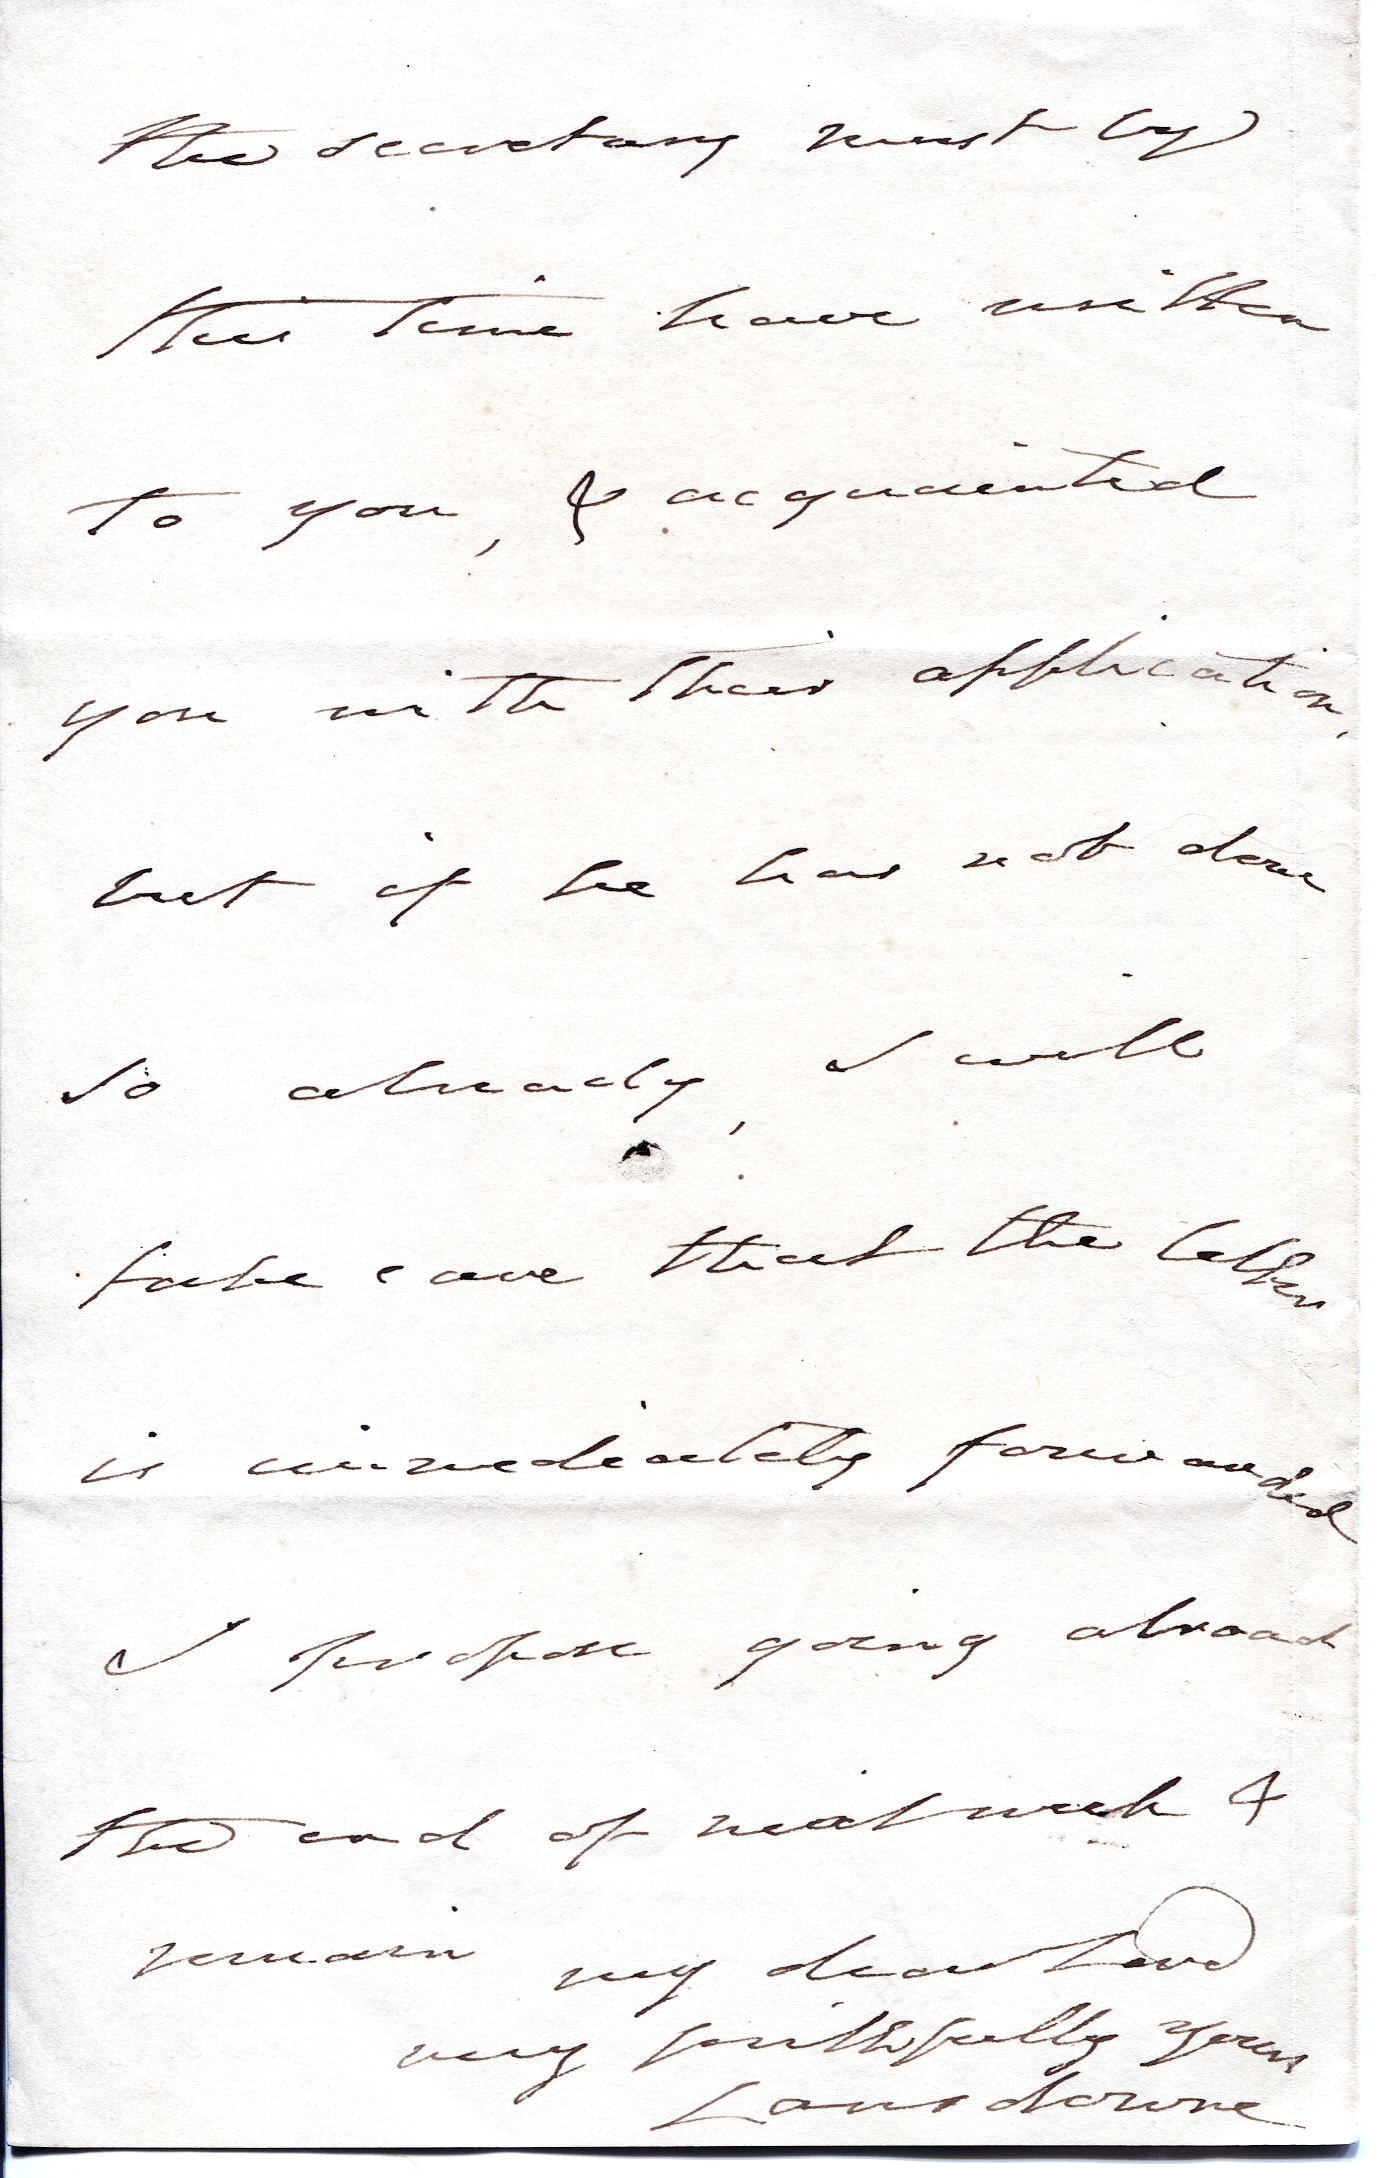 the secretary must by
this time have written
to you, & acquainted
you with their application,
but if he has not done
so already, I will
take care that the letter
is immediately forwarded
I propose going abroad
the end of next week &
remain my dear Lord
very faithfully yours
Lansdowne